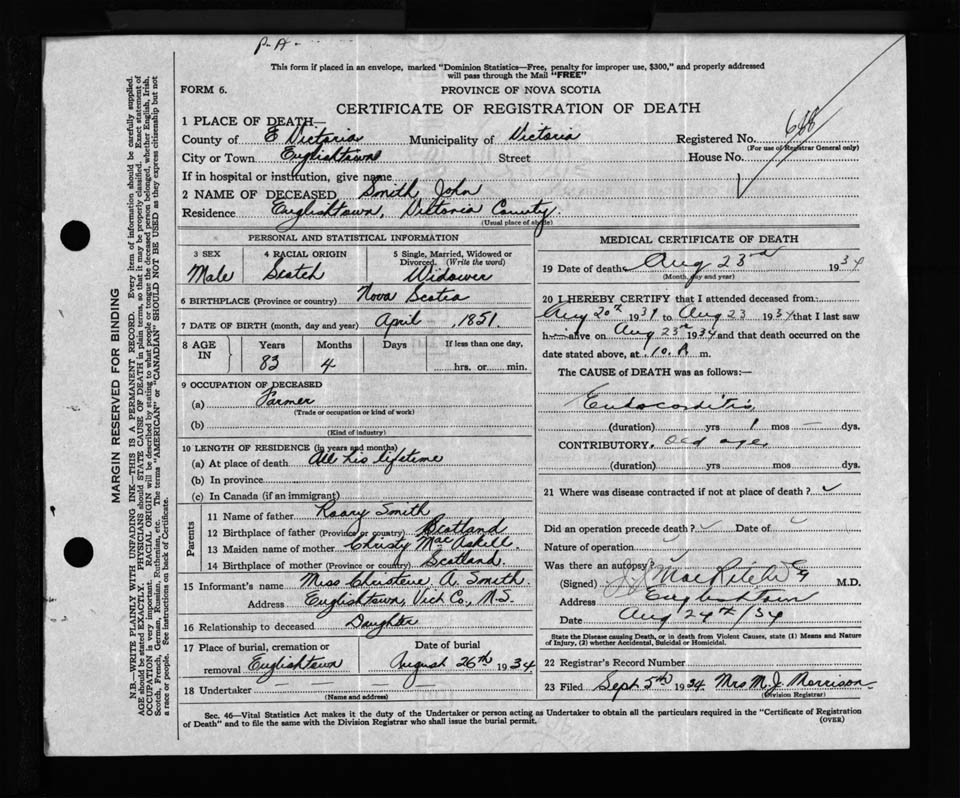 P. A.
This form if placed in an envelope, marked "Dominion Statistics—Free, penalty for improper use, $300," and properly addressed
will pass through the Mail "FREE"
FORM 6.
PROVINCE OF NOVA SCOTIA
CERTIFICATE OF REGISTRATION OF DEATH
1 PLACE OF DEATH—
County of E Victoria Municipality of Victoria Registered No. 648
(For use of Registrar General only)
City or Town Englishtown Street House No.
If in hospital or institution, give name
2 NAME OF DECEASED Smith, John
Residence Englishtown, Victoria County.
(Usual place of abode)
PERSONAL AND STATISTICAL INFORMATION
3 SEX 4 RACIAL ORIGIN 5 Single, Married, Widowed or
Divorced. (Write the word)
Male Scotch Widower
6 BIRTHPLACE (Province or country) Nova Scotia
7 DATE OF BIRTH (month, day and year) April, 1851.
8 AGE IN Years Months Days If less than one day,
83 4 hrs. or min.
9 OCCUPATION OF DECEASED
(a) Farmer
(Trade or occupation or kind of work)
(b)
(Kind of industry)
10 LENGTH OF RESIDENCE (in years and months)
(a) At place of death All his lifetime
(b) In province
(c) In Canada (if an immigrant)
Parents
11 Name of father Roary Smith
12 Birthplace of father (Province or country) Scotland
13 Maiden name of mother Christy MacAskill
14 Birthplace of mother (Province or country) Scotland.
15 Informant's name Miss Christene A. Smith.
Address Englishtown, Vict Co., N.S.
16 Relationship to deceased Daughter
17 Place of burial, cremation or Date of burial
removal Englishtown August 26th 1934
18 Undertaker — — — —
(Name and address)
MEDICAL CERTIFICATE OF DEATH
19 Date of death Aug 23rd 1934
(Month, day and year)
20 I HEREBY CERTIFY that I attended deceased from:
Aug 20th 1934 to Aug 23 1934 that I last saw
h alive on Aug 23rd 1934 and that death occurred on the
date stated above, at 10. A m.
The CAUSE of DEATH was as follows:—
Endocarditis
(duration) yrs 1 mos — dys.
CONTRIBUTORY, old age,
(duration) yrs mos dys.
21 Where was disease contracted if not at place of death?
Did an operation precede death? Date of
Nature of operation
Was there an autopsy?
(Signed) M.D.
Address Englishtown
Date Aug 24th/34
State the Disease causing Death, or in death from Violent Causes, state (1) Means and Nature
of Injury, (2) whether Accidental, Suicidal or Homicidal.
22 Registrar's Record Number
23 Filed Sept 5th 1934. Mrs M. J. Morrison.
(Division Registrar)
Sec. 46—Vital Statistics Act makes it the duty of the Undertaker or person acting as Undertaker to obtain all the particulars required in the "Certificate of Registration
of Death" and to file the same with the Division Registrar who shall issue the burial permit.
(OVER)
MARGIN RESERVED FOR BINDING
N.B.—WRITE PLAINLY WITH UNFADING INK—THIS IS A PERMANENT RECORD. Every item of information should be carefully supplied.
AGE should be stated EXACTLY. PHYSICIANS should STATE CAUSE OF DEATH in plain terms, so that it may be properly classified. Exact statement of
OCCUPATION is very important. RACIAL ORIGIN will be described by stating to what people or tongue the deceased person belonged, whether English, Irish,
Scotch, French, German, Russian, Ruthenian, etc. The terms "AMERICAN" or "CANADIAN" SHOULD NOT BE USED as they express citizenship but not
a race or people. See instructions on back of Certificate.